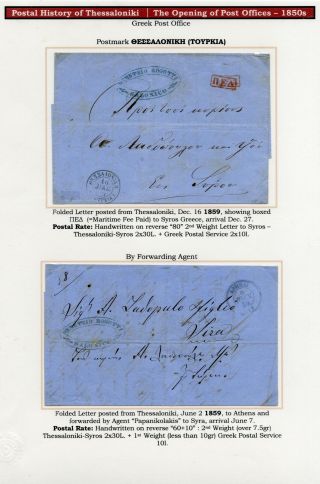 Postal History of Thessaloniki | The Opening of Post Offices – 1850s
Greek Post Office
Postmark ΘΕΣΣΑΛΟΝΙΚΗ (ΤΟΥΡΚΙΑ)
SALONICO
ΠΕΔ
Προς τους κυρίους
Folded Letter posted from Thessaloniki, Dec. 16 1859, showing boxed
ΠΕΔ (=Maritime Fee Paid) to Syros Greece, arrival Dec. 27.
Postal Rate: Handwritten on reverse "80" 2nd Weight Letter to Syros –
Thessaloniki-Syros 2x30L. + Greek Postal Service 2x10l.
By Forwarding Agent
Sira
Folded Letter posted from Thessaloniki, June 2 1859, to Athens and
forwarded by Agent "Papanikolakis" to Syra, arrival June 7.
Postal Rate: Handwritten on reverse "60+10" : 2nd Weight (over 7.5gr)
Thessaloniki-Syros 2x30L. + 1st Weight (less than 10gr) Greek Postal Service
10l.